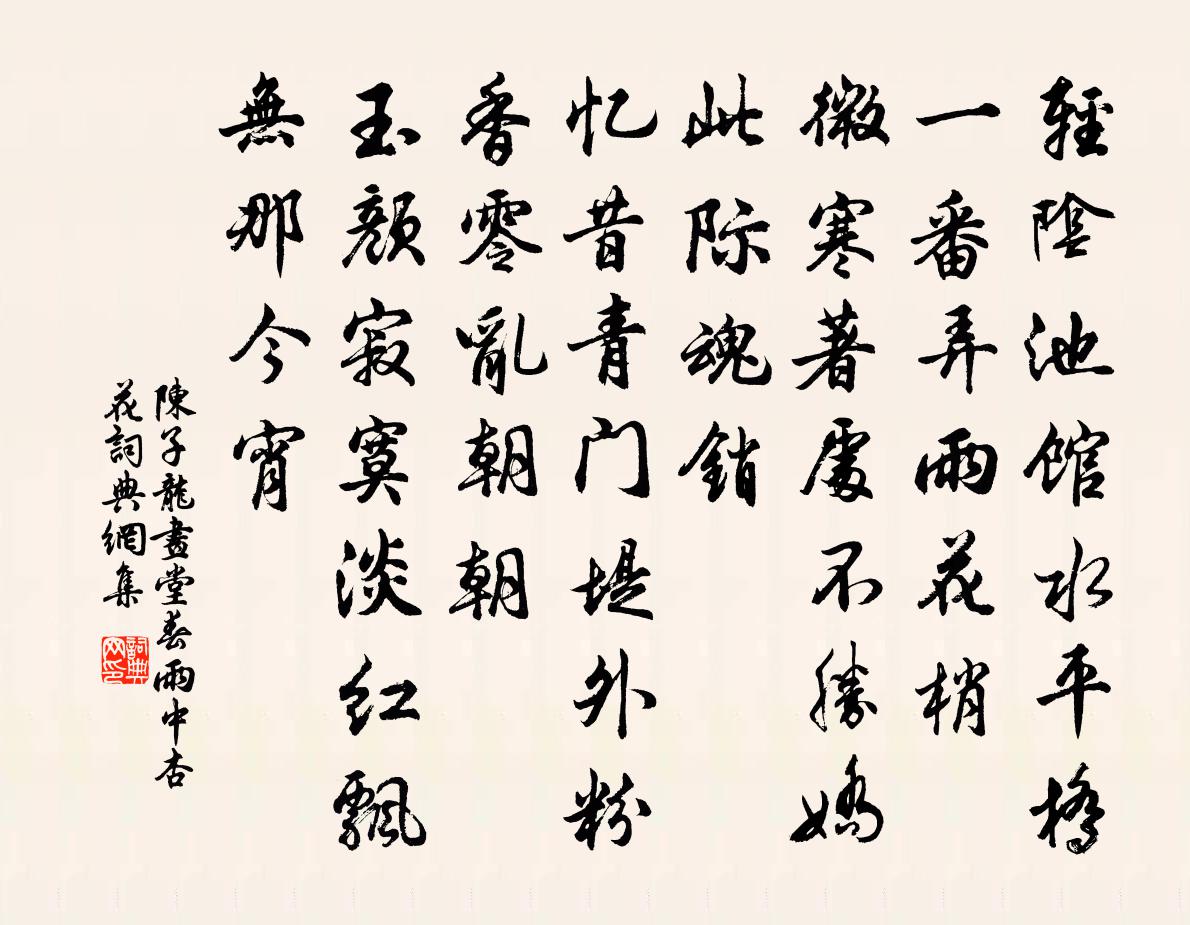 輕陰池館水平橋
一番弄雨花梢
微寒著處不勝嬌
此际魂銷
忆昔青门堤外粉
香零亂朝朝
玉顏寂寞淡红飄
無那今宵
陳子龍畫堂春雨中杏
花詞典網集
詞典网印